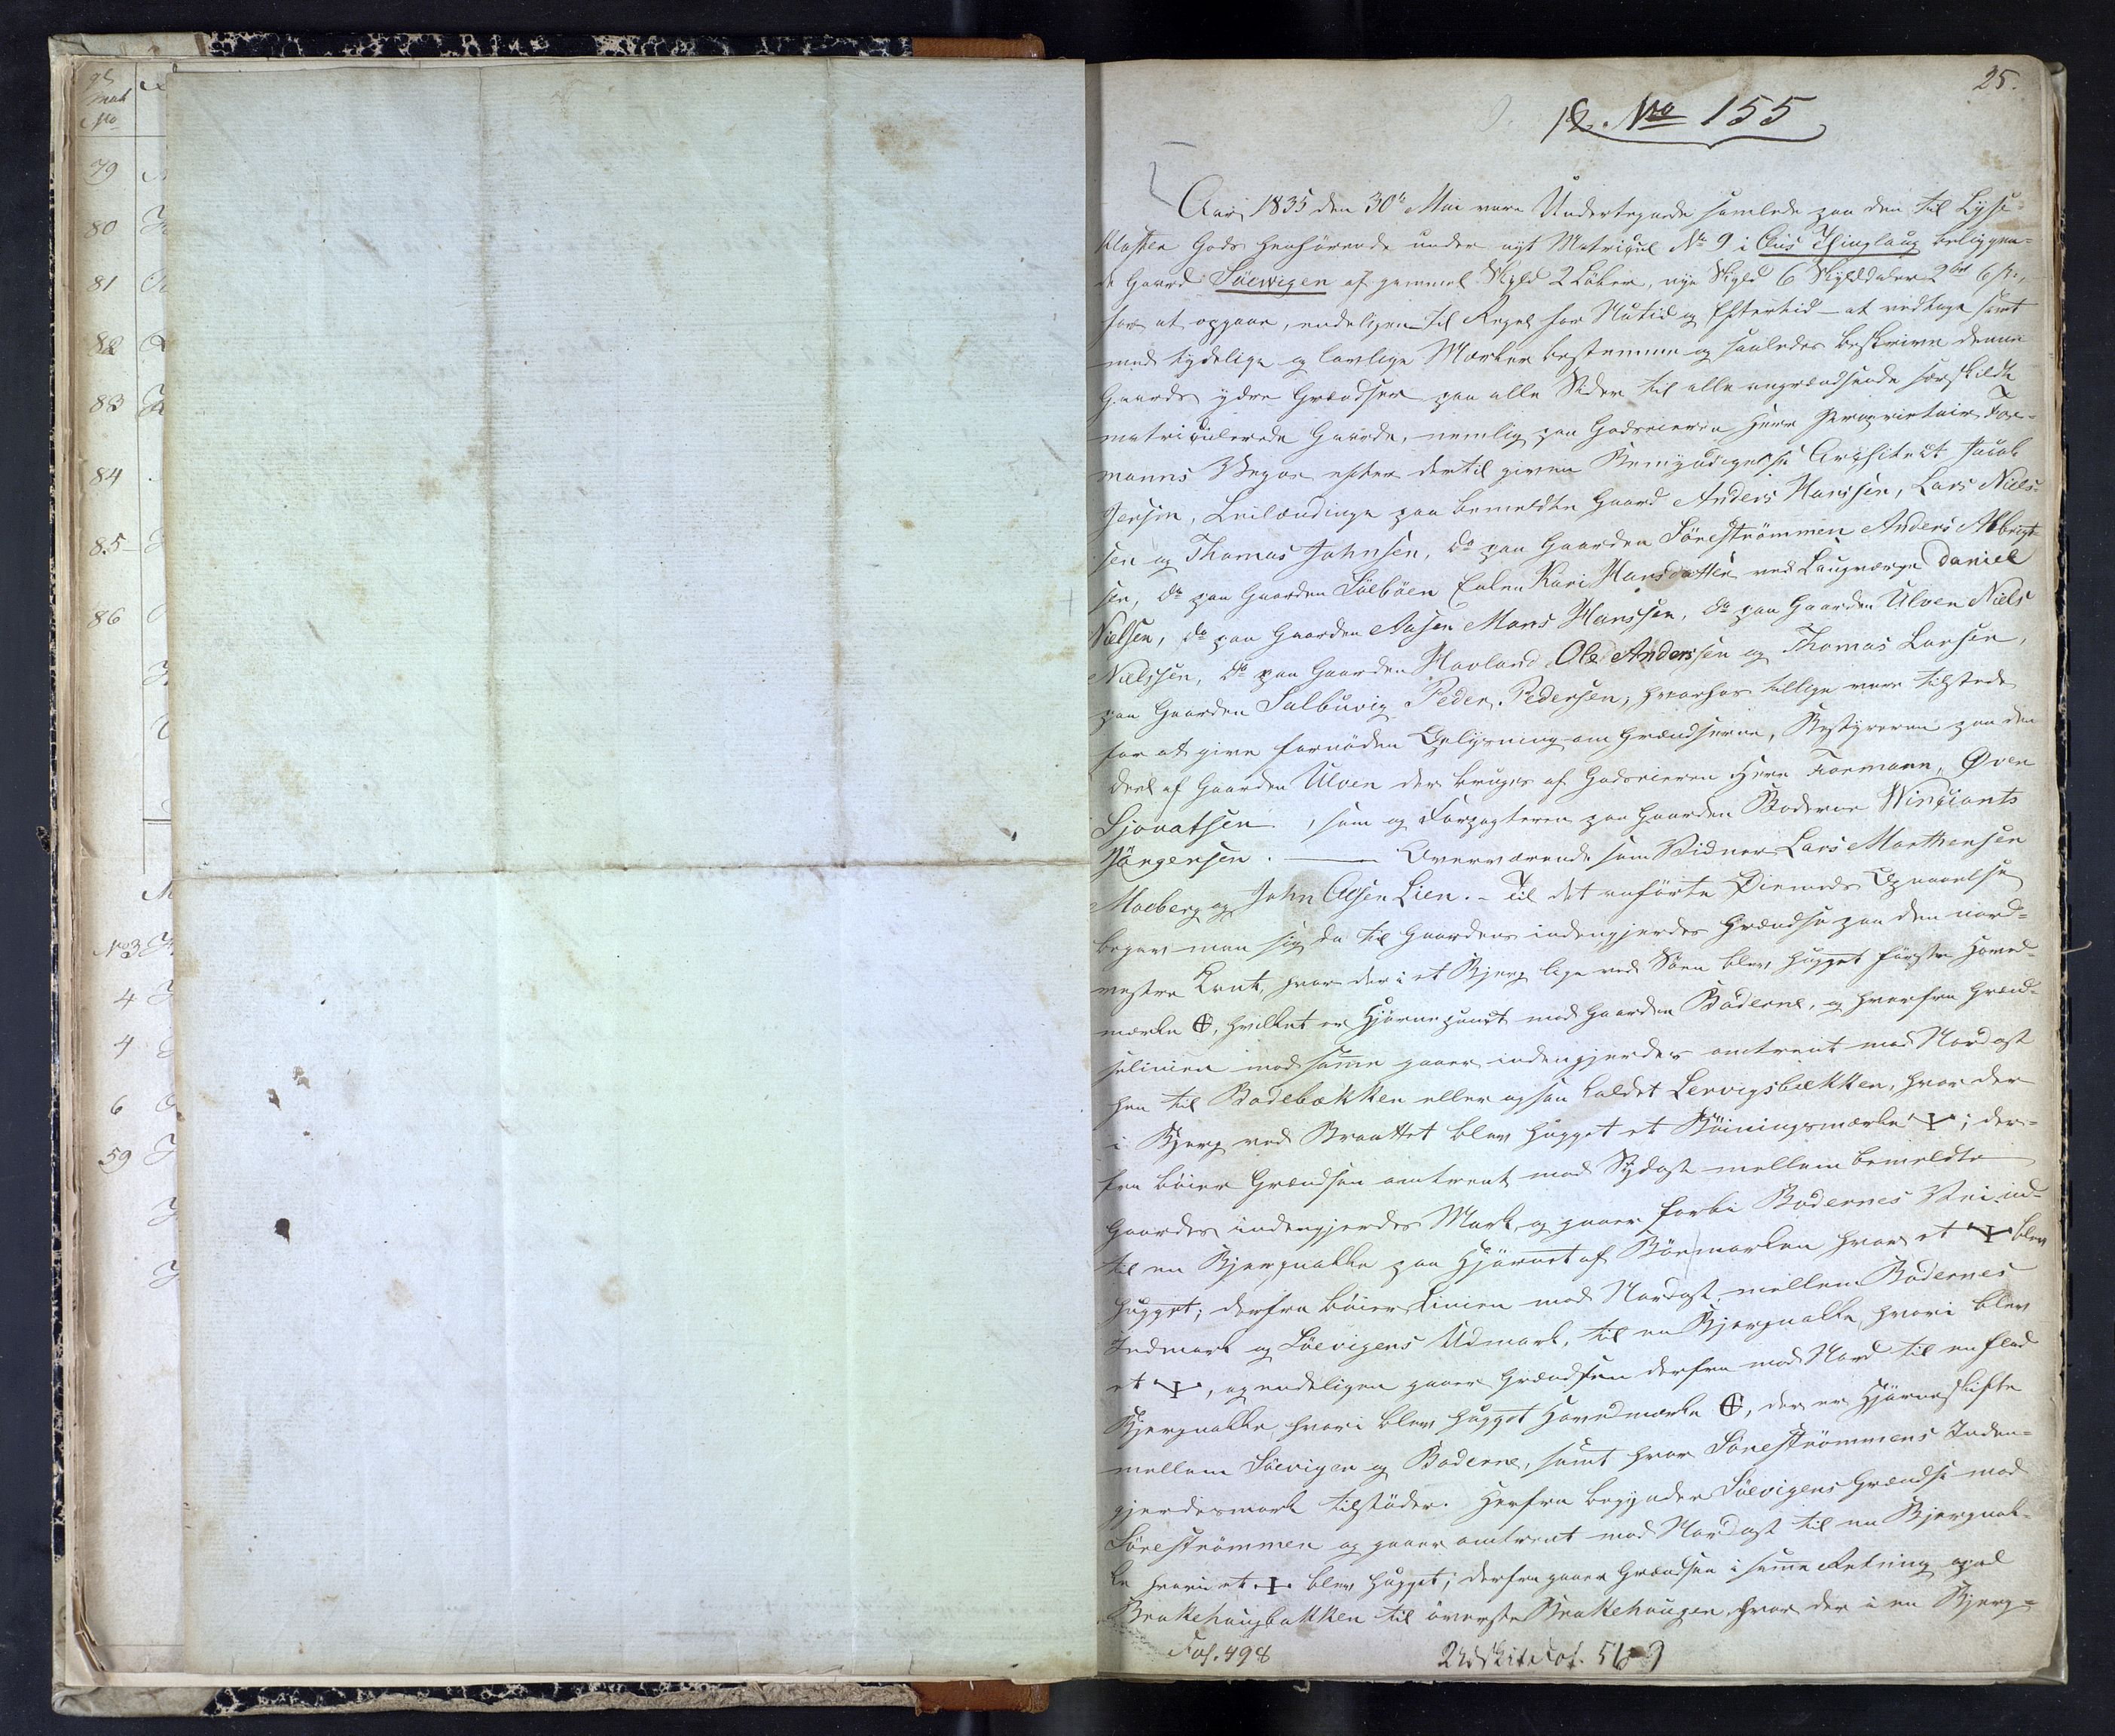 25.
No 155
Aar 1835 den 30te Mai vare Undertegnede samlede paa den til Lyse-
kloster Gods henhörende under nyt Matricul No 9 i Ous Thinglaug beliggen-
de Gaard Söevigen af gammel Skyld 2 Löber, nye Skyld 6 Skylddaler 2 ort 6 s.,
for at opgaae, endeligen til Regel for Nutid og Eftertid at vedtage samt
med tydelige og lovlige Mærker bestemme og saaledes beskrive denne
Gaards ydre Grændser paa alle Sider til alle angrændsende særskildt
matriculerede Gaarde, nemlig paa Godseieren Herr Proprietair For-
manns Vegne efter dertil given Bemyndigelse Architect Jacob
Jensen, Leilændinge paa bemeldte Gaard Anders Hanssen, Lars Niels-
sen og Thomas Johnsen, do paa Gaarden Söreströmmen Anders Albrigt-
sen, do paa Gaarden Söeböen Enken Kari Hansdatter ved Laugværge Daniel
Nielsen, do paa Gaarden Aasen Mons Hanssen, do paa Gaarden Ulven Niels
Nielssen, do paa Gaarden Havland Ole Anderssen og Thomas Larsen,
paa Gaarden Salbuvig Peder Pedersen, hvorhos tillige vare tilstede
for at give fornöden Oplysning om Grændserne, Bestyreren paa den
Deel af Gaarden Ulven der bruges af Godseieren Herr Formann, Öven
Sjovatsen, som og Forpagteren paa Gaarden Boderne Winciants
Jörgensen. — Overværende som Vidner Lars Marthensen
Moberg og John Olsen Lien. – Til det anförte Öiemeds Opnaaelse
begav man sig da til Gaardens indengjerdes Grændse paa den nord-
vestre Kant, hvor der i et Bjerg lige ved Söen blev hugget förste Hoved-
mærke ⊕, hvilket er Hjörnepunct mod Gaarden Böderne, og hvorfra Grænd-
selinien mod samme gaaer indengjerdes omtrent mod Nordost
hen til Bodebækken eller ogsaa kaldet Lervigsbækken, hvor der
i Bjerg ved Braattet blev hugget et Böiningsmærke +; der-
fra böier Grændsen omtrent mod Sydost mellem bemeldte
Gaardes indengjerdes Mark, og gaaer forbi Bodernes Vei ind-
til en Bjergnakke paa Hjörnet af Böemarken hvor et + blev
hugget; derfra böier Linien mod Nordost, mellem Bodernes
Indmark og Söevigens Udmark, til en Bjergnakke, hvori blev
et +, og endeligen gaaer Grændsen derfra mod Nord til en flad
Bjergnakke, hvori blev hugget Hovedmærke ⊕, der er Hjörneskifte
mellem Söevigen og Boderne, samt hvor Söreströmmens Inden-
gjerdesmark tilstöder. Herfra begynder Söevigens Grændse mod
Söreströmmen og gaaer omtrent mod Nordost til en Bjergnak-
ke hvori et + blev hugget; derfra gaaer Grændsen i samme Retning opad
Brakehougbakken til överste Brakehougen, hvor der i en Bjerg-
Fol. 498
Udskift Fol. 569